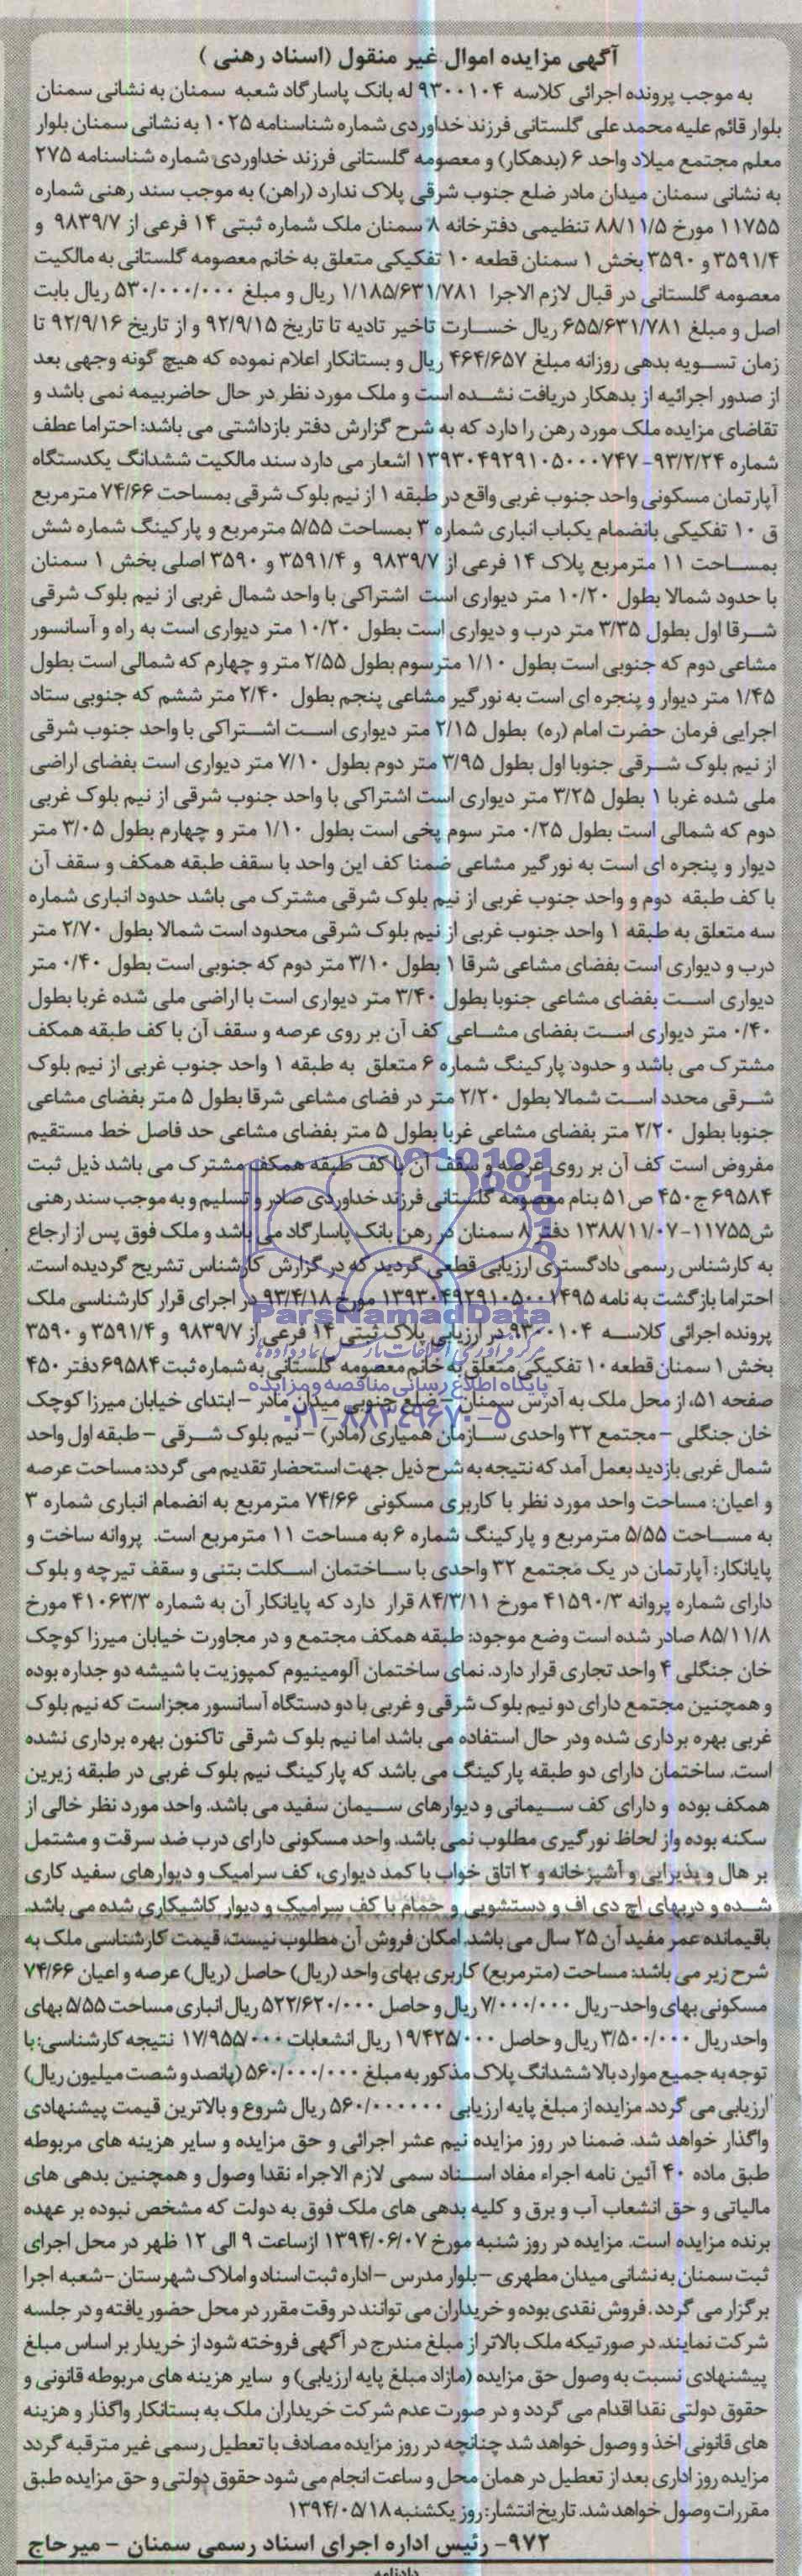 آگهی مزایده اموال غیر منقول (اسناد رهنی )
به موجب پرونده اجرائی کلاسه ۹۳۰۰۱۰۴ له بانک پاسارگاد شعبه سمنان به نشانی سمنان
بلوار قائم علیه محمد علی گلستانی فرزند خداوردی شماره شناسنامه ۱۰۲۵ به نشانی سمنان بلوار
معلم مجتمع میلاد واحد ۶ (بدهکار) و معصومه گلستانی فرزند خداوردی شماره شناسنامه ۲۷۵
به نشانی سمنان میدان مادر ضلع جنوب شرقی پلاک ندارد (راهن) به موجب سند رهنی شماره
۱۱۷۵۵ مورخ ۸۸/۱۱/۵ تنظیمی دفترخانه ۸ سمنان ملک شماره ثبتی ۱۴ فرعی از ۹۸۳۹/۷ و
۳۵۹۱/۴ و ۳۵۹۰ بخش ۱ سمنان قطعه ۱۰ تفکیکی متعلق به خانم معصومه گلستانی به مالکیت
معصومه گلستانی در قبال لازم الاجرا ۱/۱۸۵/۶۳۱/۷۸۱ ریال و مبلغ ۵۳۰/۰۰۰/۰۰۰ ریال بابت
اصل و مبلغ ۶۵۵/۶۳۱/۷۸۱ ریال خسارت تاخیر تادیه تا تاریخ ۹۲/۹/۱۵ و از تاریخ ۹۲/۹/۱۶ تا
زمان تسویه بدهی روزانه مبلغ ۴۶۴/۶۵۷ ریال و بستانکار اعلام نموده که هیچ گونه وجهی بعد
از صدور اجرائیه از بدهکار دریافت نشده است و ملک مورد نظر در حال حاضربیمه نمی باشد و
تقاضای مزایده ملک مورد رهن را دارد که به شرح گزارش دفتر بازداشتی می باشد: احتراما عطف
شماره ۹۳/۲/۲۴-۱۳۹۳۰۴۹۲۹۱۰۵۰۰۰۷۴۷ اشعار می دارد سند مالکیت ششدانگ یکدستگاه
آپارتمان مسکونی واحد جنوب غربی واقع در طبقه ۱ از نیم بلوک شرقی بمساحت ۷۴/۶۶ مترمربع
ق ۱۰ تفکیکی بانضمام یکباب انباری شماره ۳ بمساحت ۵/۵۵ مترمربع و پارکینگ شماره شش
بمساحت ۱۱ مترمربع پلاک ۱۴ فرعی از ۹۸۳۹/۷ و ۳۵۹۱/۴ و ۳۵۹۰ اصلی بخش ۱ سمنان
با حدود شمالا بطول ۱۰/۲۰ متر دیواری است اشتراکی با واحد شمال غربی از نیم بلوک شرقی
شرقا اول بطول ۳/۳۵ متر درب و دیواری است بطول ۱۰/۲۰ متر دیواری است به راه و آسانسور
مشاعی دوم که جنوبی است بطول ۱/۱۰ مترسوم بطول ۲/۵۵ متر و چهارم که شمالی است بطول
۱/۴۵ متر دیوار و پنجره ای است به نورگیر مشاعی پنجم بطول ۲/۴۰ متر ششم که جنوبی ستاد
اجرایی فرمان حضرت امام (ره) بطول ۲/۱۵ متر دیواری است اشتراکی با واحد جنوب شرقی
از نیم بلوک شرقی جنوبا اول بطول ۳/۹۵ متر دوم بطول ۷/۱۰ متر دیواری است بفضای اراضی
ملی شده غربا ۱ بطول ۳/۲۵ متر دیواری است اشتراکی با واحد جنوب شرقی از نیم بلوک غربی
دوم که شمالی است بطول ۰/۲۵ متر سوم پخی است بطول ۱/۱۰ متر و چهارم بطول ۳/۰۵ متر
دیوار و پنجره ای است به نورگیر مشاعی ضمنا کف این واحد با سقف طبقه همکف و سقف آن
با کف طبقه دوم و واحد جنوب غربی از نیم بلوک شرقی مشترک می باشد حدود انباری شماره
سه متعلق به طبقه ۱ واحد جنوب غربی از نیم بلوک شرقی محدود است شمالا بطول ۲/۷۰ متر
درب و دیواری است بفضای مشاعی شرقا ۱ بطول ۳/۱۰ متر دوم که جنوبی است بطول ۰/۴۰ متر
دیواری است بفضای مشاعی جنوبا بطول ۳/۴۰ متر دیواری است با اراضی ملی شده غربا بطول
۰/۴۰ متر دیواری است بفضای مشاعی کف آن بر روی عرصه و سقف آن با کف طبقه همکف
مشترک می باشد و حدود پارکینگ شماره ۶ متعلق به طبقه ۱ واحد جنوب غربی از نیم بلوک
شرقی محدد است شمالا بطول ۲/۲۰ متر در فضای مشاعی شرقا بطول ۵ متر بفضای مشاعی
جنوبا بطول ۲/۲۰ متر بفضای مشاعی غربا بطول ۵ متر بفضای مشاعی حد فاصل خط مستقیم
مفروض است کف آن بر روی عرصه و سقف آن با کف طبقه همکف مشترک می باشد ذیل ثبت
۶۹۵۸۴ ج ۴۵۰ ص ۵۱ بنام معصومه گلستانی فرزند خداوردی صادر و تسلیم و به موجب سند رهنی
ش۱۱۷۵۵-۱۳۸۸/۱۱/۰۷ دفتر ۸ سمنان در رهن بانک پاسارگاد می باشد و ملک فوق پس از ارجاع
به کارشناس رسمی دادگستری ارزیابی قطعی گردید که در گزارش کارشناس تشریح گردیده است.
احتراما بازگشت به نامه ۱۳۹۳۰۴۹۲۹۱۰۵۰۰۱۴۹۵ مورخ ۹۳/۴/۱۸ در اجرای قرار کارشناسی ملک
ParsNamadData
پرونده اجرائی کلاسه ۹۳۰۰۱۰۴ در ارزیابی پلاک ثبتی ۱۴ فرعی از ۹۸۳۹/۷ و ۳۵۹۱/۴ و ۳۵۹۰
بخش ۱ سمنان قطعه ۱۰ تفکیکی متعلق به خانم معصومه گلستانی به شماره ثبت ۶۹۵۸۴ دفتر ۴۵۰
پایگاه اطلاع رسانی مناقصه و مزایده
صفحه ۵۱، از محل ملک به آدرس سمنان - ضلع جنوبی میدان مادر - ابتدای خیابان میرزا کوچک
۰۲۱-۸۸۳۴۹۶۷۰-۵
خان جنگلی - مجتمع ۳۲ واحدی سازمان همیاری (مادر) - نیم بلوک شرقی - طبقه اول واحد
شمال غربی بازدید بعمل آمد که نتیجه به شرح ذیل جهت استحضار تقدیم می گردد: مساحت عرصه
و اعیان: مساحت واحد مورد نظر با کاربری مسکونی ۷۴/۶۶ مترمربع به انضمام انباری شماره ۳
به مساحت ۵/۵۵ مترمربع و پارکینگ شماره ۶ به مساحت ۱۱ مترمربع است. پروانه ساخت و
پایانکار: آپارتمان در یک مجتمع ۳۲ واحدی با ساختمان اسکلت بتنی و سقف تیرچه و بلوک
دارای شماره پروانه ۴۱۵۹۰/۳ مورخ ۸۴/۳/۱۱ قرار دارد که پایانکار آن به شماره ۴۱۰۶۳/۳ مورخ
۸۵/۱۱/۸ صادر شده است وضع موجود: طبقه همکف مجتمع و در مجاورت خیابان میرزا کوچک
خان جنگلی ۴ واحد تجاری قرار دارد. نمای ساختمان آلومینیوم کمپوزیت با شیشه دو جداره بوده
و همچنین مجتمع دارای دو نیم بلوک شرقی و غربی با دو دستگاه آسانسور مجزاست که نیم بلوک
غربی بهره برداری شده ودر حال استفاده می باشد اما نیم بلوک شرقی تاکنون بهره برداری نشده
است. ساختمان دارای دو طبقه پارکینگ می باشد که پارکینگ نیم بلوک غربی در طبقه زیرین
همکف بوده و دارای کف سیمانی و دیوارهای سیمان سفید می باشد. واحد مورد نظر خالی از
سکنه بوده واز لحاظ نورگیری مطلوب نمی باشد. واحد مسکونی دارای درب ضد سرقت و مشتمل
بر هال و پذیرایی و آشپزخانه و ۲ اتاق خواب با کمد دیواری، کف سرامیک و دیوارهای سفید کاری
شده و دربهای اچ دی اف و دستشویی و حمام با کف سرامیک و دیوار کاشیکاری شده می باشد.
باقیمانده عمر مفید آن ۲۵ سال می باشد. امکان فروش آن مطلوب نیست. قیمت کارشناسی ملک به
شرح زیر می باشد: مساحت (مترمربع) کاربری بهای واحد (ریال) حاصل (ریال) عرصه و اعیان ۷۴/۶۶
مسکونی بهای واحد-ریال ۷/۰۰۰/۰۰۰ ریال و حاصل ۵۲۲/۶۲۰/۰۰۰ ریال انباری مساحت ۵/۵۵ بهای
واحد ریال ۳/۵۰۰/۰۰۰ ریال و حاصل ۱۹/۴۲۵/۰۰۰ ریال انشعابات ۱۷/۹۵۵/۰۰۰ نتیجه کارشناسی: با
توجه به جمیع موارد بالا ششدانگ پلاک مذکور به مبلغ ۵۶۰/۰۰۰/۰۰۰ (پانصد و شصت میلیون ریال)
ارزیابی می گردد. مزایده از مبلغ پایه ارزیابی ۵۶۰/۰۰۰۰۰۰ ریال شروع و بالاترین قیمت پیشنهادی
واگذار خواهد شد. ضمنا در روز مزایده نیم عشر اجرائی و حق مزایده و سایر هزینه های مربوطه
طبق ماده ۴۰ آئین نامه اجراء مفاد اسناد سمی لازم الاجراء نقدا وصول و همچنین بدهی های
مالیاتی و حق انشعاب آب و برق و کلیه بدهی های ملک فوق به دولت که مشخص نبوده بر عهده
برنده مزایده است. مزایده در روز شنبه مورخ ۱۳۹۴/۰۶/۰۷ ازساعت ۹ الی ۱۲ ظهر در محل اجرای
ثبت سمنان به نشانی میدان مطهری -بلوار مدرس -اداره ثبت اسناد و املاک شهرستان -شعبه اجرا
برگزار می گردد. فروش نقدی بوده و خریداران می توانند در وقت مقرر در محل حضور یافته و در جلسه
شرکت نمایند. در صورتیکه ملک بالاتر از مبلغ مندرج در آگهی فروخته شود از خریدار بر اساس مبلغ
پیشنهادی نسبت به وصول حق مزایده (مازاد مبلغ پایه ارزیابی) و سایر هزینه های مربوطه قانونی و
حقوق دولتی نقدا اقدام می گردد و در صورت عدم شرکت خریداران ملک به بستانکار واگذار و هزینه
های قانونی اخذ و وصول خواهد شد چنانچه در روز مزایده مصادف با تعطیل رسمی غیر مترقبه گردد
مزایده روز اداری بعد از تعطیل در همان محل و ساعت انجام می شود حقوق دولتی و حق مزایده طبق
مقررات وصول خواهد شد. تاریخ انتشار: روز یکشنبه ۱۳۹۴/۰۵/۱۸
۹۷۲- رئیس اداره اجرای اسناد رسمی سمنان - میرحاج